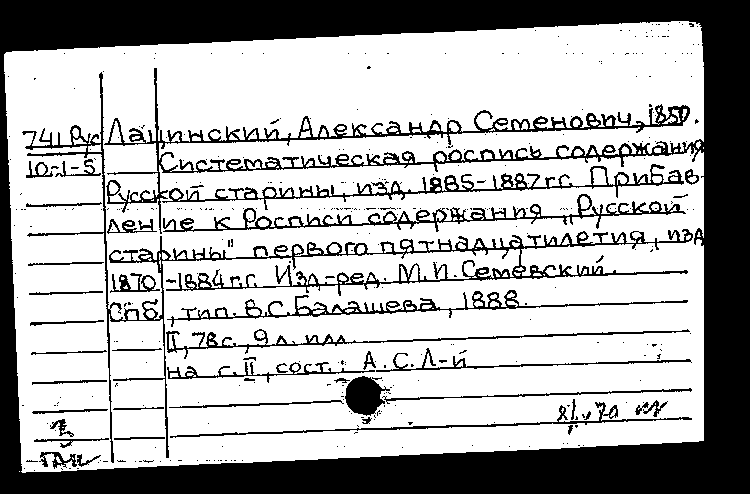 741 Рус Лащинский, Александр Семенович, 1850.
10г.1-5 Систематическая роспись содержания
Русской старины, изд. 1885-1887гг. Прибав-
ление к Росписи содержания „Русской
старины" первого пятнадцатилетия, изд
1870-1884 гг. Изд.-ред. М.И. Семевский.
Спб., тип. В.С. Балашева, 1888.
II, 78 с., 9 л. илл.
на с. II, сост.: А.С. Л-й